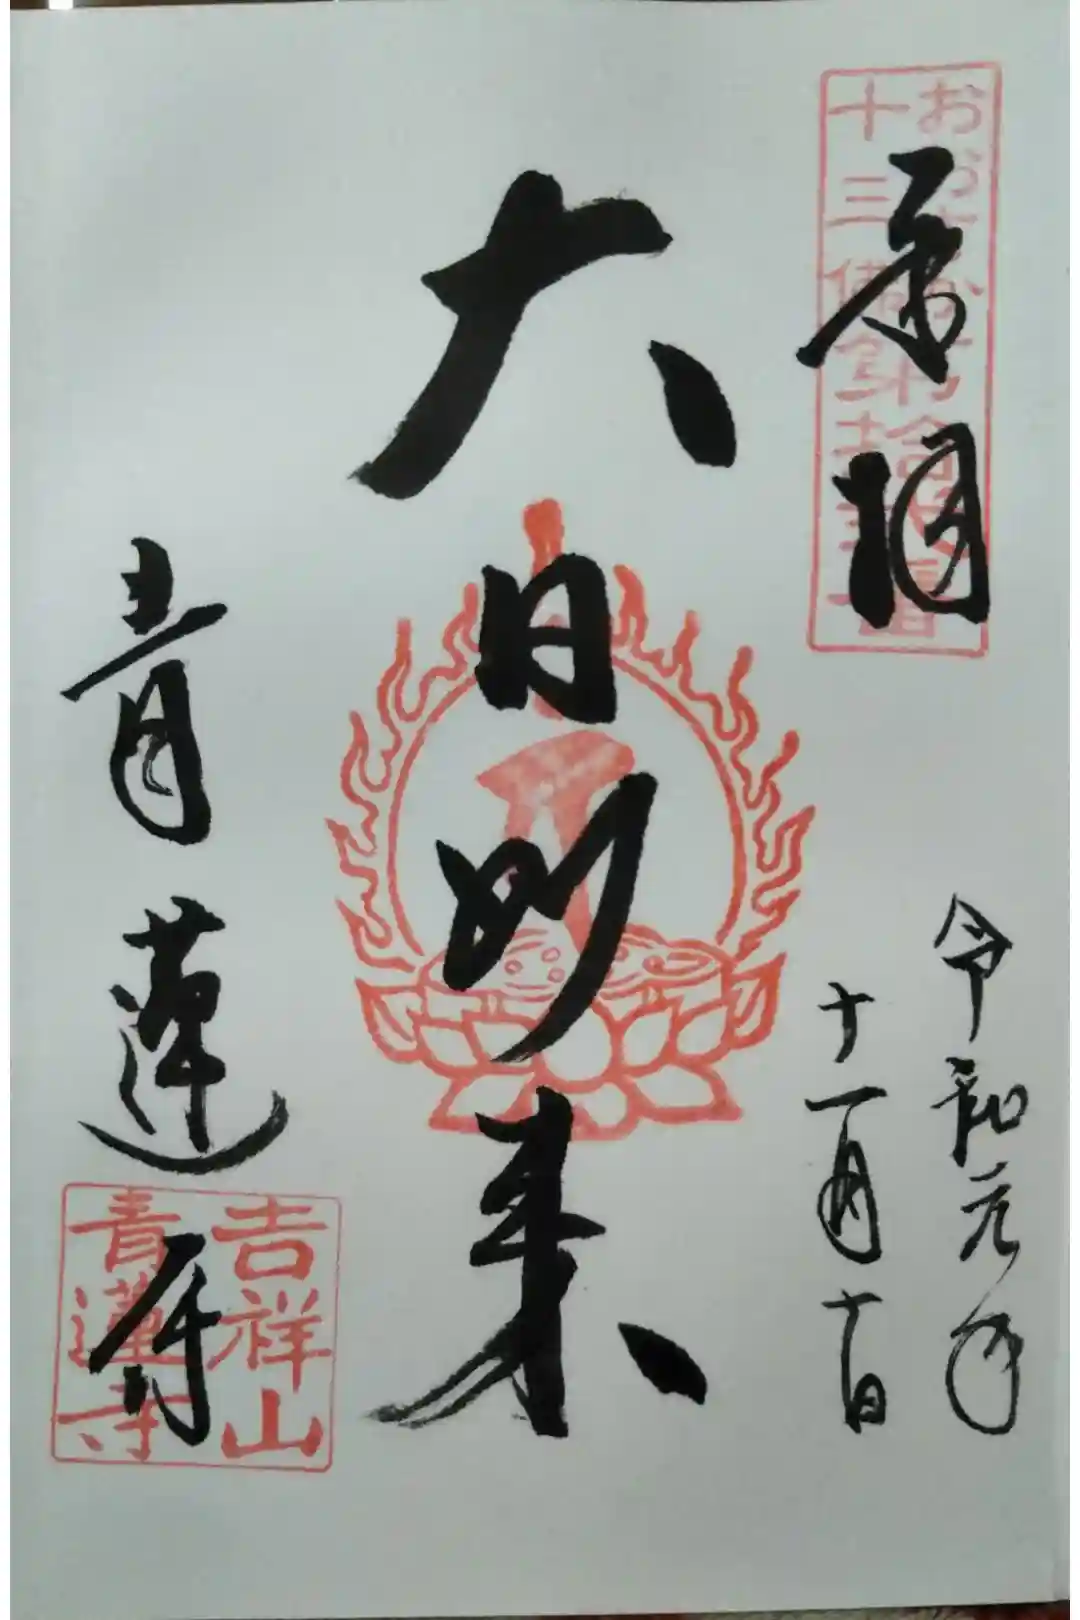 おおさか
十三佛第拾弐番
奉拝
令和元年
十一月十日
大日如来
青蓮寺
吉祥山
青蓮寺